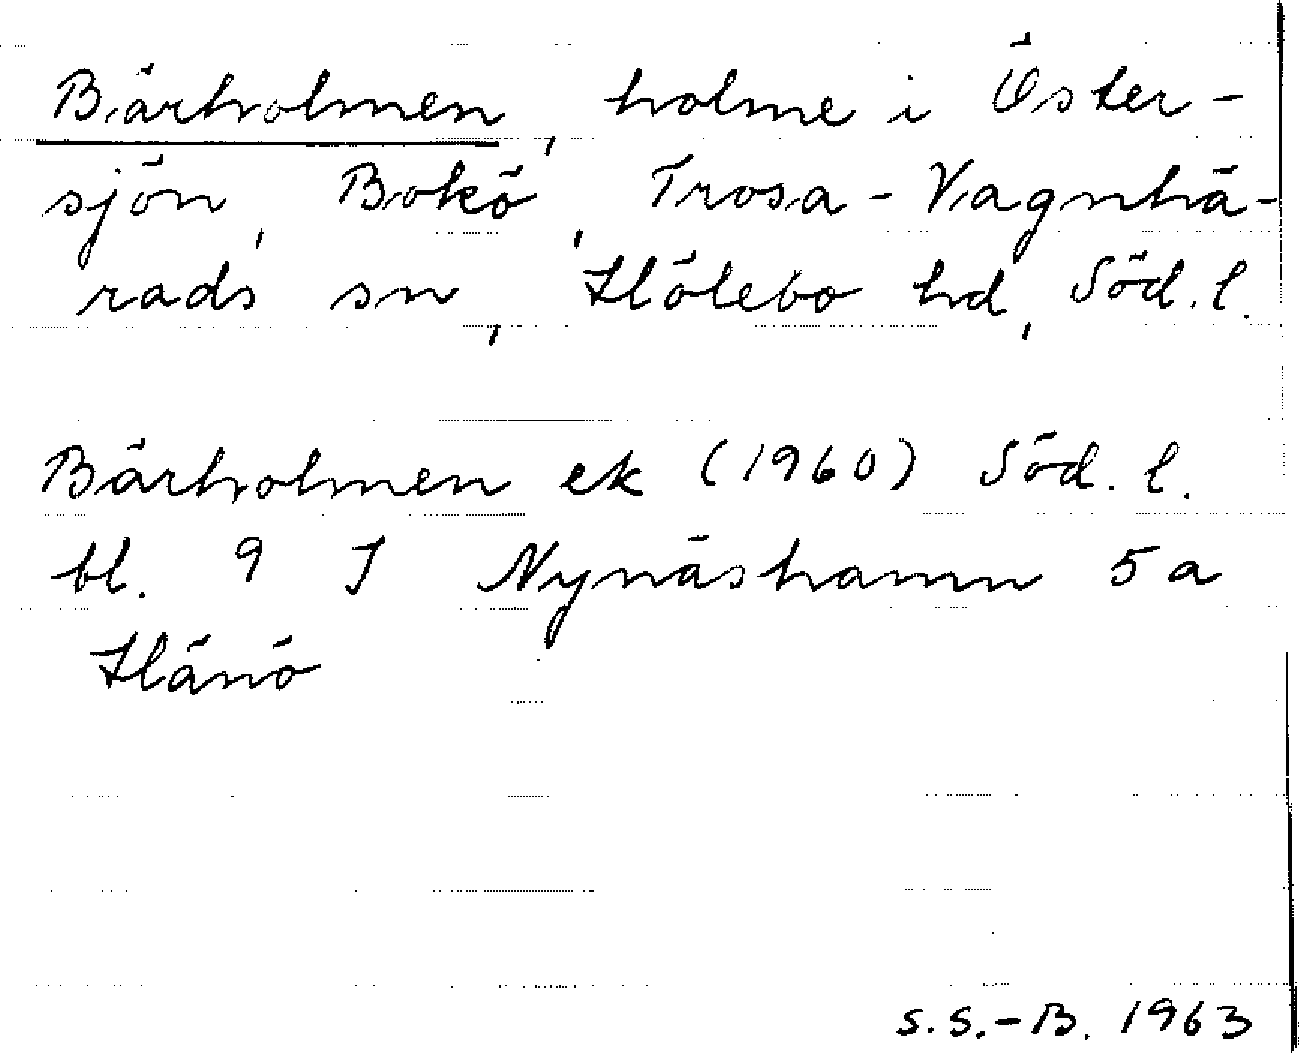 Bärholmen, holme i Öster-
sjön, Bokö, Trosa-Vagnhä-
rads sn, Hölebo hd, Söd. l.
Bärholmen ek (1960) Söd. l.
bl. 9 I Nynäshamn 5 a
Hånö
S.S.-B. 1963